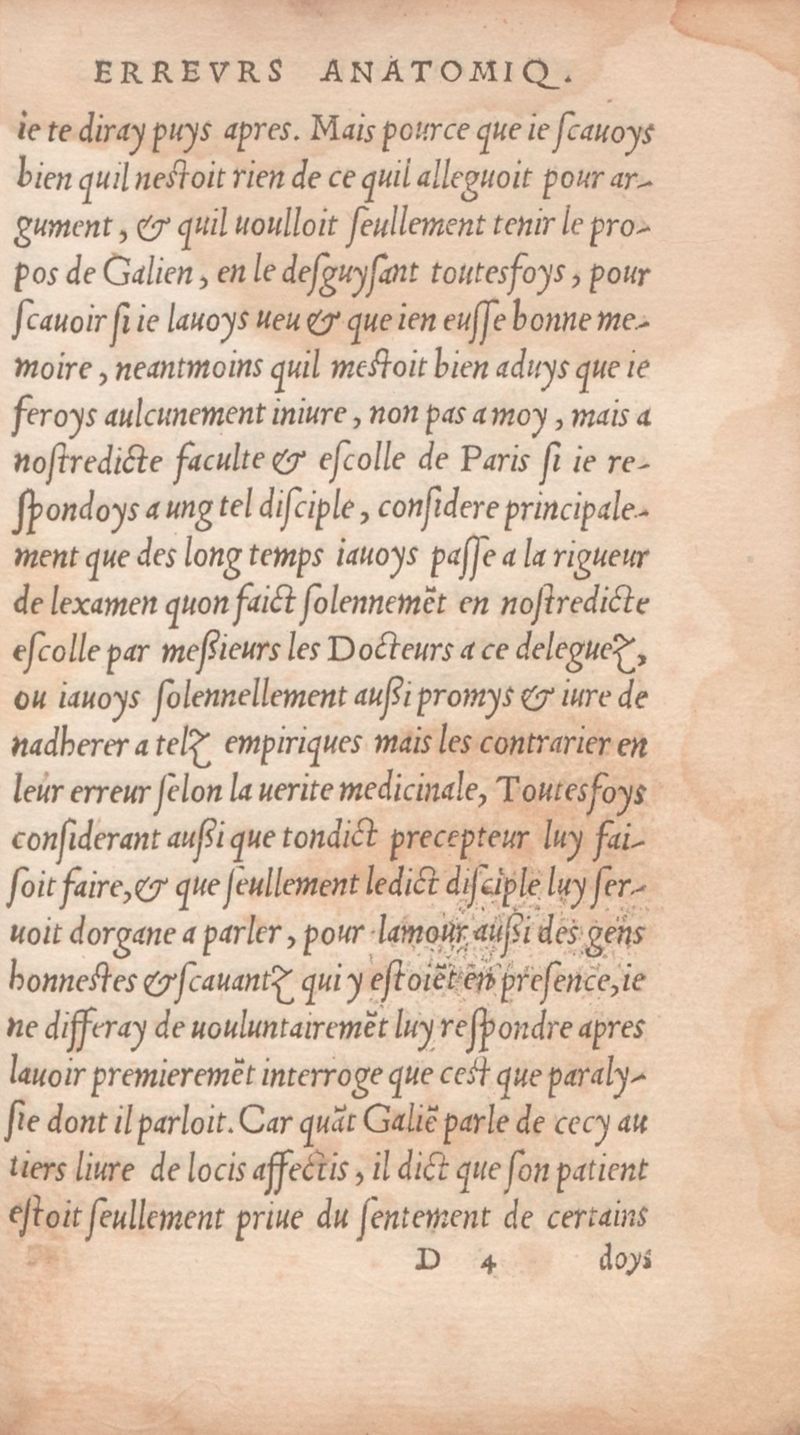 ERREVRS ANATOMIQ.
ie te diray puys apres. Mais pource que ie ſcauoys
bien quil neſtoit rien de ce quil alleguoit pour ar-
gument, & quil uoulloit ſeullement tenir le pro-
pos de Galien, en le deſguyſant toutesfoys, pour
ſcauoir ſi ie lauoys ueu & que ien euſſe bonne me-
moire, neantmoins quil meſtoit bien aduys que ie
feroys aulcunement iniure, non pas a moy, mais a
noſtredicte faculte & eſcolle de Paris ſi ie re-
ſpondoys a ung tel diſciple, conſidere principale-
ment que des long temps iauoys paſſe a la rigueur
de lexamen quon faict ſolennemẽt en noſtredicte
eſcolle par meßieurs les Docteurs a ce deleguez,
ou iauoys ſolennellement außi promys & iure de
nadherer a telz empiriques mais les contrarier en
leur erreur ſelon la uerite medicinale, Toutesfoys
conſiderant außi que tondict precepteur luy fai-
ſoit faire,& que ſeullement ledict diſciple luy ſer-
uoit dorgane a parler, pour lamour außi des gens
honneſtes & ſcauantz qui y eſtoiẽt en preſence,ie
ne differay de uouluntairemẽt luy reſpondre apres
lauoir premieremẽt interroge que ceſt que paraly-
ſie dont il parloit. Car quãt Galiẽ parle de cecy au
tiers liure de locis affectis, il dict que ſon patient
eſtoit ſeullement priue du ſentement de certains
D 4 doys